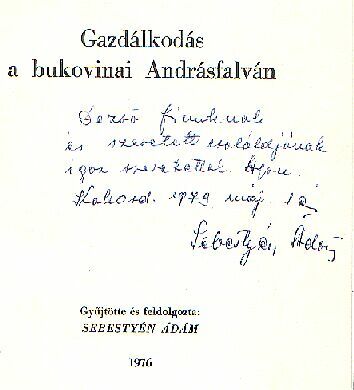 Gazdálkodás
a bukovinai Andrásfalván
Dezső fiunknak
és szeretett családjának
igen szeretettel
Kakasd. 1979 máj. 12
Sebestyén Ádám
Gyűjtötte és feldolgozta:
SEBESTYÉN ÁDÁM
1976